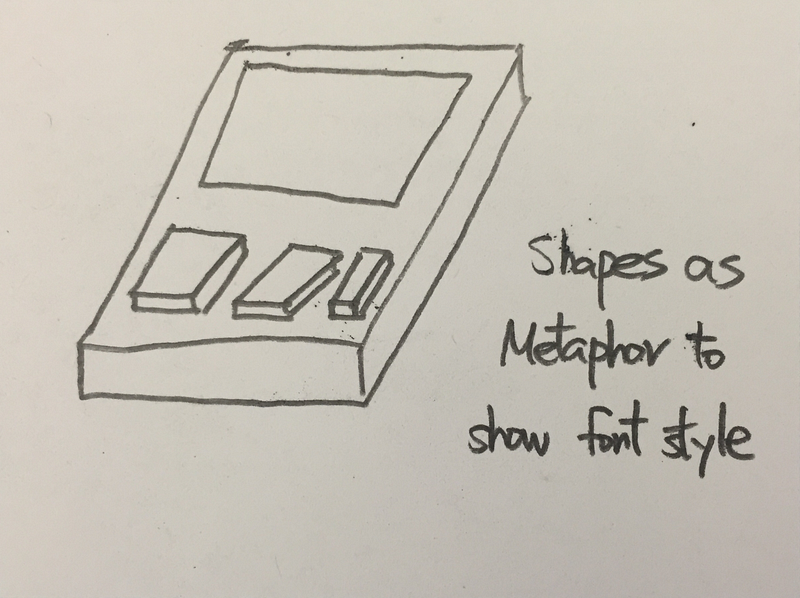 Shapes as
Metaphor to
show font style